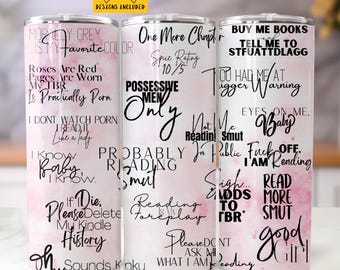 DESIGNS INCLUDED
GREY
IS My Favorite COLOR
Roses Are Red
Pages Are Worn
My TBR
Is Practically Porn
I DONT WATCH PORN
I READ IT
Like a lady
I Know
Baby
I Know.
If Die,
Please Delete
My Kindle
History
oh
Sounds Kinky
One More Chapter
Spice Rating
10/5
POSSESSIVE
MEN
Only
Not Me
Reading Smut
In Public
PROBABLY
READING
Smut
Reading
Foreplay
Please DONT
ASK ME
WHAT I AM
BUY ME BOOKS
TELL ME TO
STFUATTDLAGG
YOU HAD ME AT
Trigger Warning
EYES ON ME,
Baby
Fuck OFF.
I AM Reading
Sigh...
ADDS
TO
TBR*
READ
MORE
SMUT
good
Girl